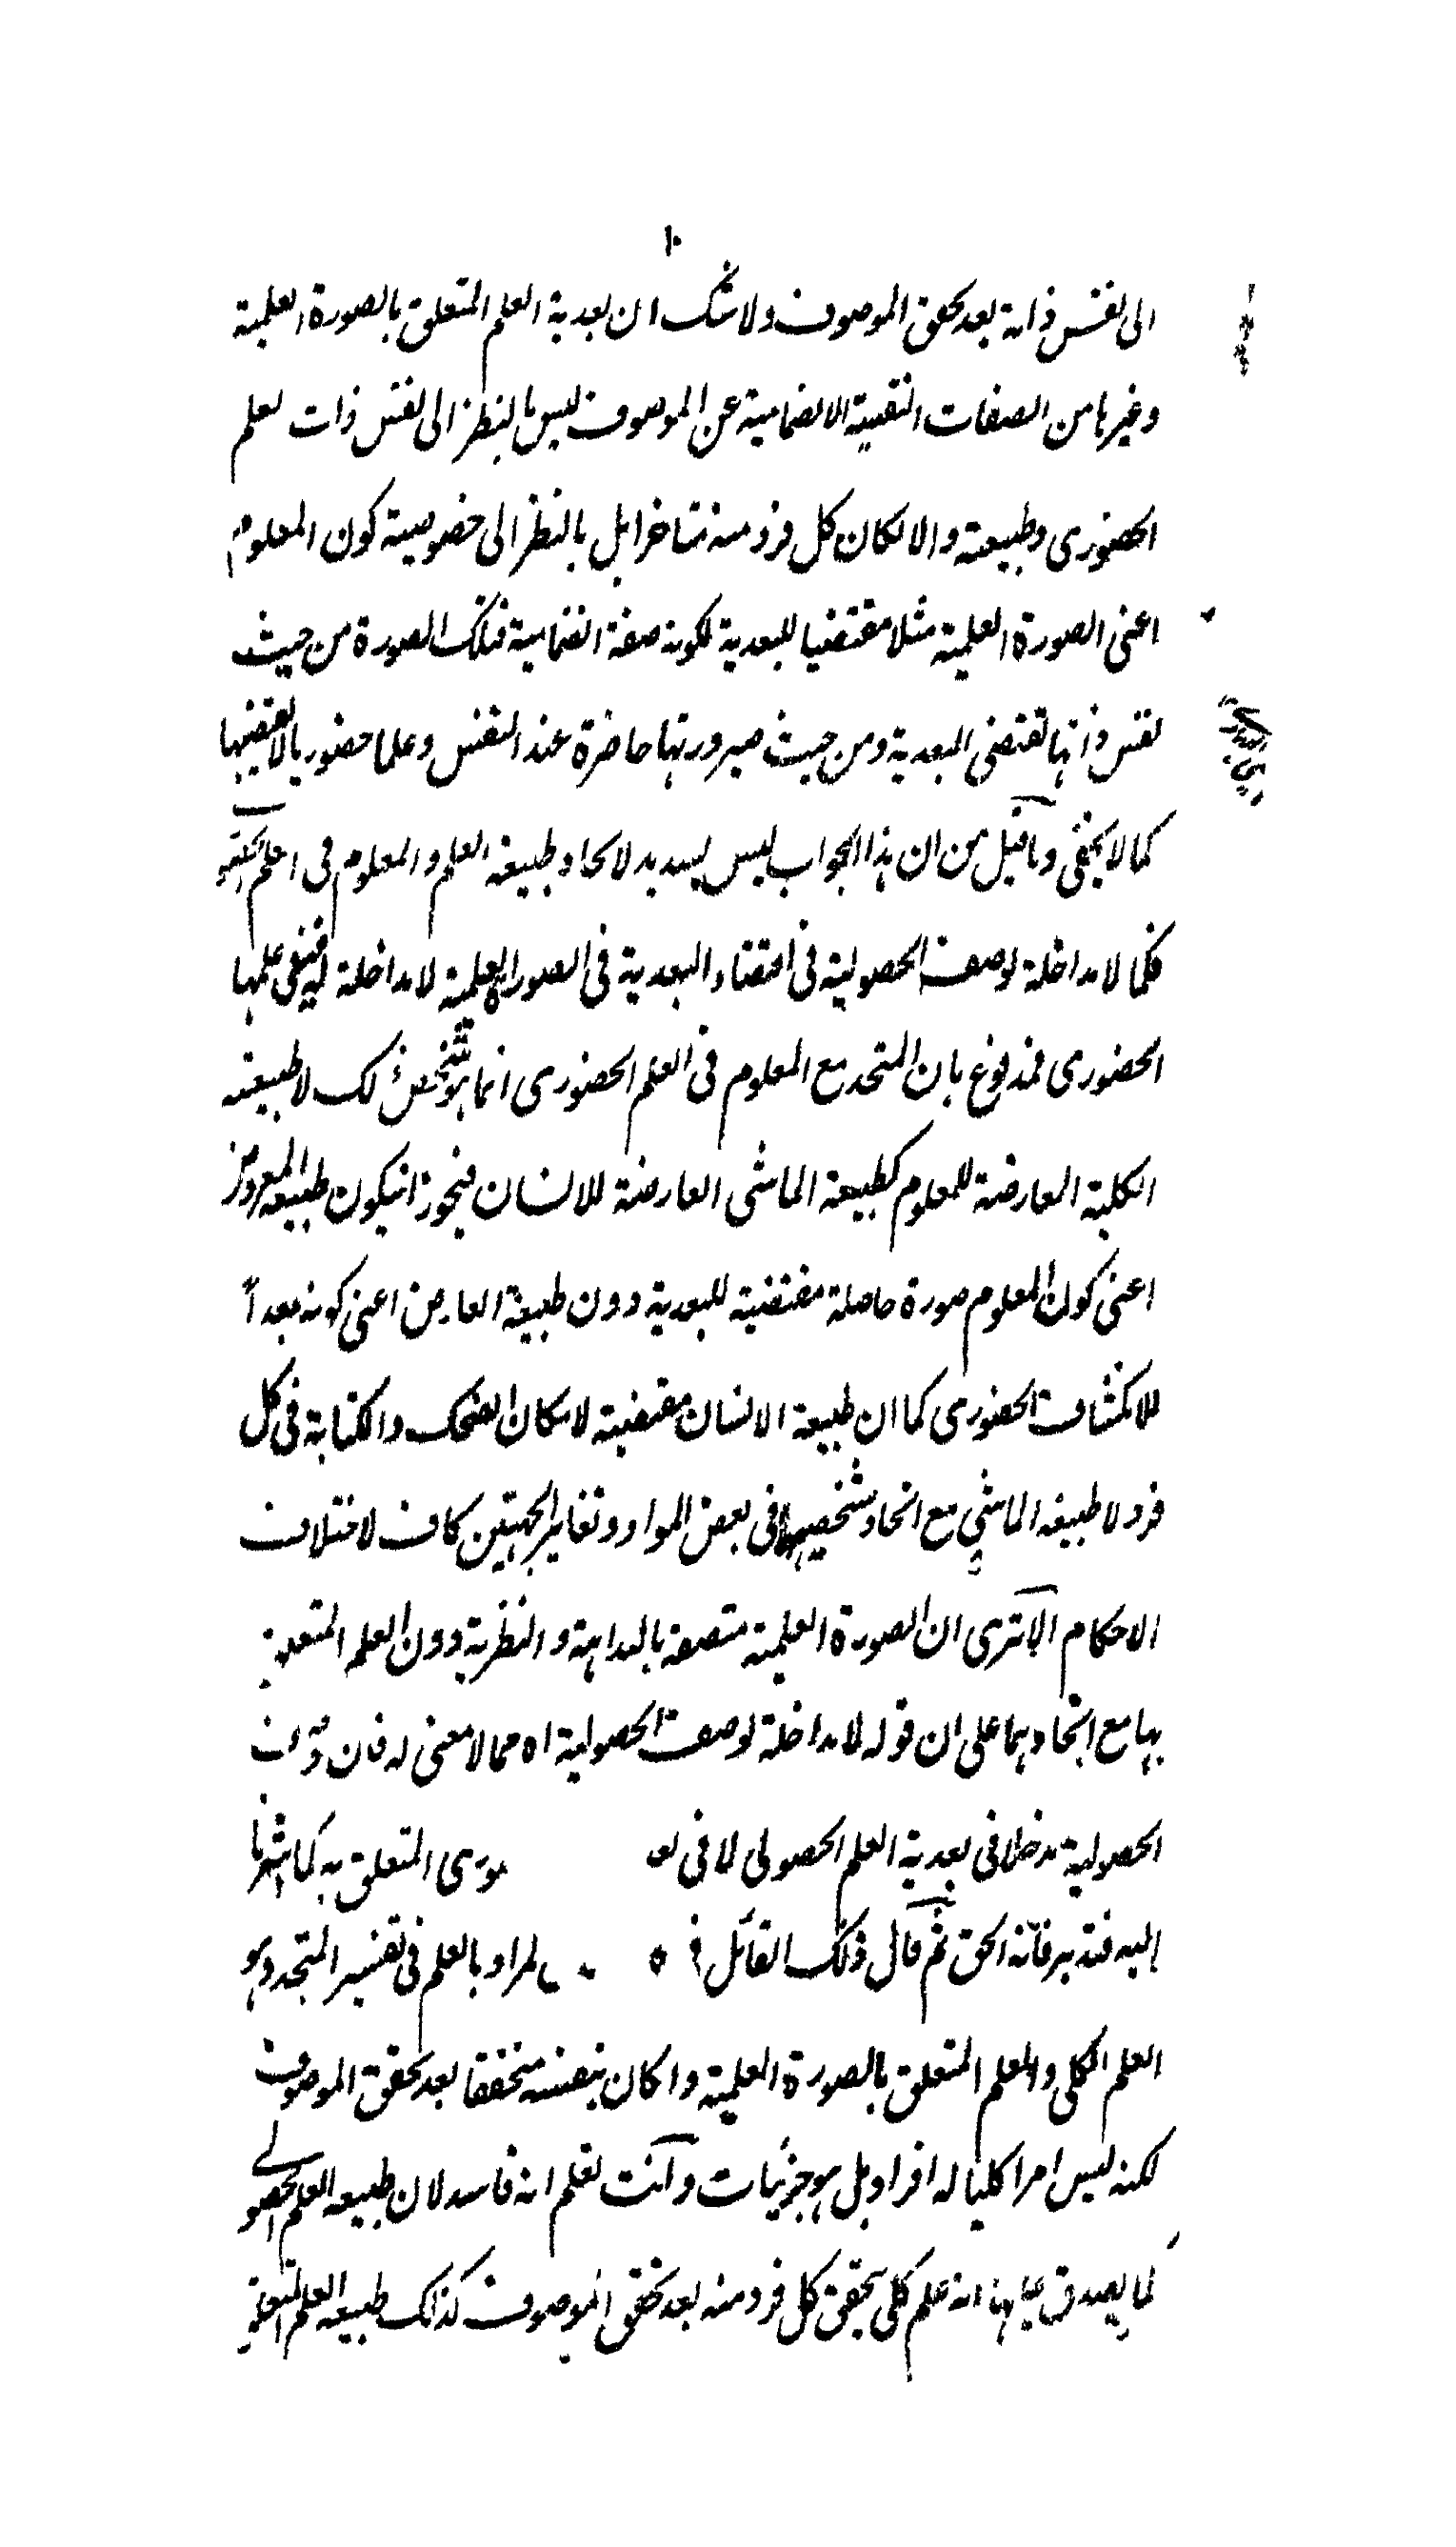 ١٠
الى نفس ذاته بعد تحقق الموصوف ولا شك ان بعدية العلم المتعلق بالصورة العلمية
وغيرها من الصفات النفسية الانضمامية عن الموصوف ليس بالنظر الى نفس ذات لعلم
الحضورى وطبيعته والا لكان كل فرد منه متاخرا بل بالنظر الى خصوصية كون المعلوم
اعنى الصورة العلمية مثلا مقتضيا للبعدية لكونه صفة انضمامية فتلك الصورة من حيث
نفس ذاتها تقتضى البعدية ومن حيث صيرورتها حاضرة عند النفس وعلما حضوريا لا تقتضيها
كما لا يخفى وما قيل من ان هذا الجواب ليس بسديد لاتحاد طبيعة العلم والمعلوم فى العلم
فكما لا مداخلة لوصف الحصولية فى اقتضاء البعدية فى الصورة العلمية لا مداخلة له فى علمها
الحضورى فمدفوع بان المتحد مع المعلوم فى العلم الحضورى انما هو شخص ذلك لا طبيعته
الكلية العارضة للمعلوم كطبيعة الماشى العارضة للانسان فيجوز انيكون طبيعة المعروض
اعنى كون المعلوم صورة حاصلة مقتضية للبعدية دون طبيعة العارض اعنى كونه مبدأ
للانكشاف الحضورى كما ان طبيعة الانسان مقتضية لامكان الضحك والكتابة فى كل
فرد لا طبيعة الماشى مع اتحاد شخصيهما فى بعض المواد وتغاير الجهتين كاف لاختلاف
الاحكام الا ترى ان الصورة العلمية متصفة بالبداهة والنظرية دون العلم المتعلق
بها مع اتحادهما على ان قوله لا مداخلة لوصف الحصولية اه مما لا معنى له فان
الحصولية مدخلا فى بعدية العلم الحصولى لا فى المتعلق به كما اشرنا
اليه فتدبر فانه الحق ثم قال ذلك القائل المراد بالعلم فى تفسير المتجدد هو
العلم الكلى والعلم المتعلق بالصورة العلمية وا كان بنفسه متحققا بعد تحقق الموصوف
لكنه ليس امرا كليا له افراد بل هو جزئيات وانت تعلم انه فاسد لان طبيعة العلم الحصولى
لما يصدق عليها انه علم كلى يتحقق كل فرد منه بعد تحقق الموصوف كذلك طبيعة العلم المتعلق